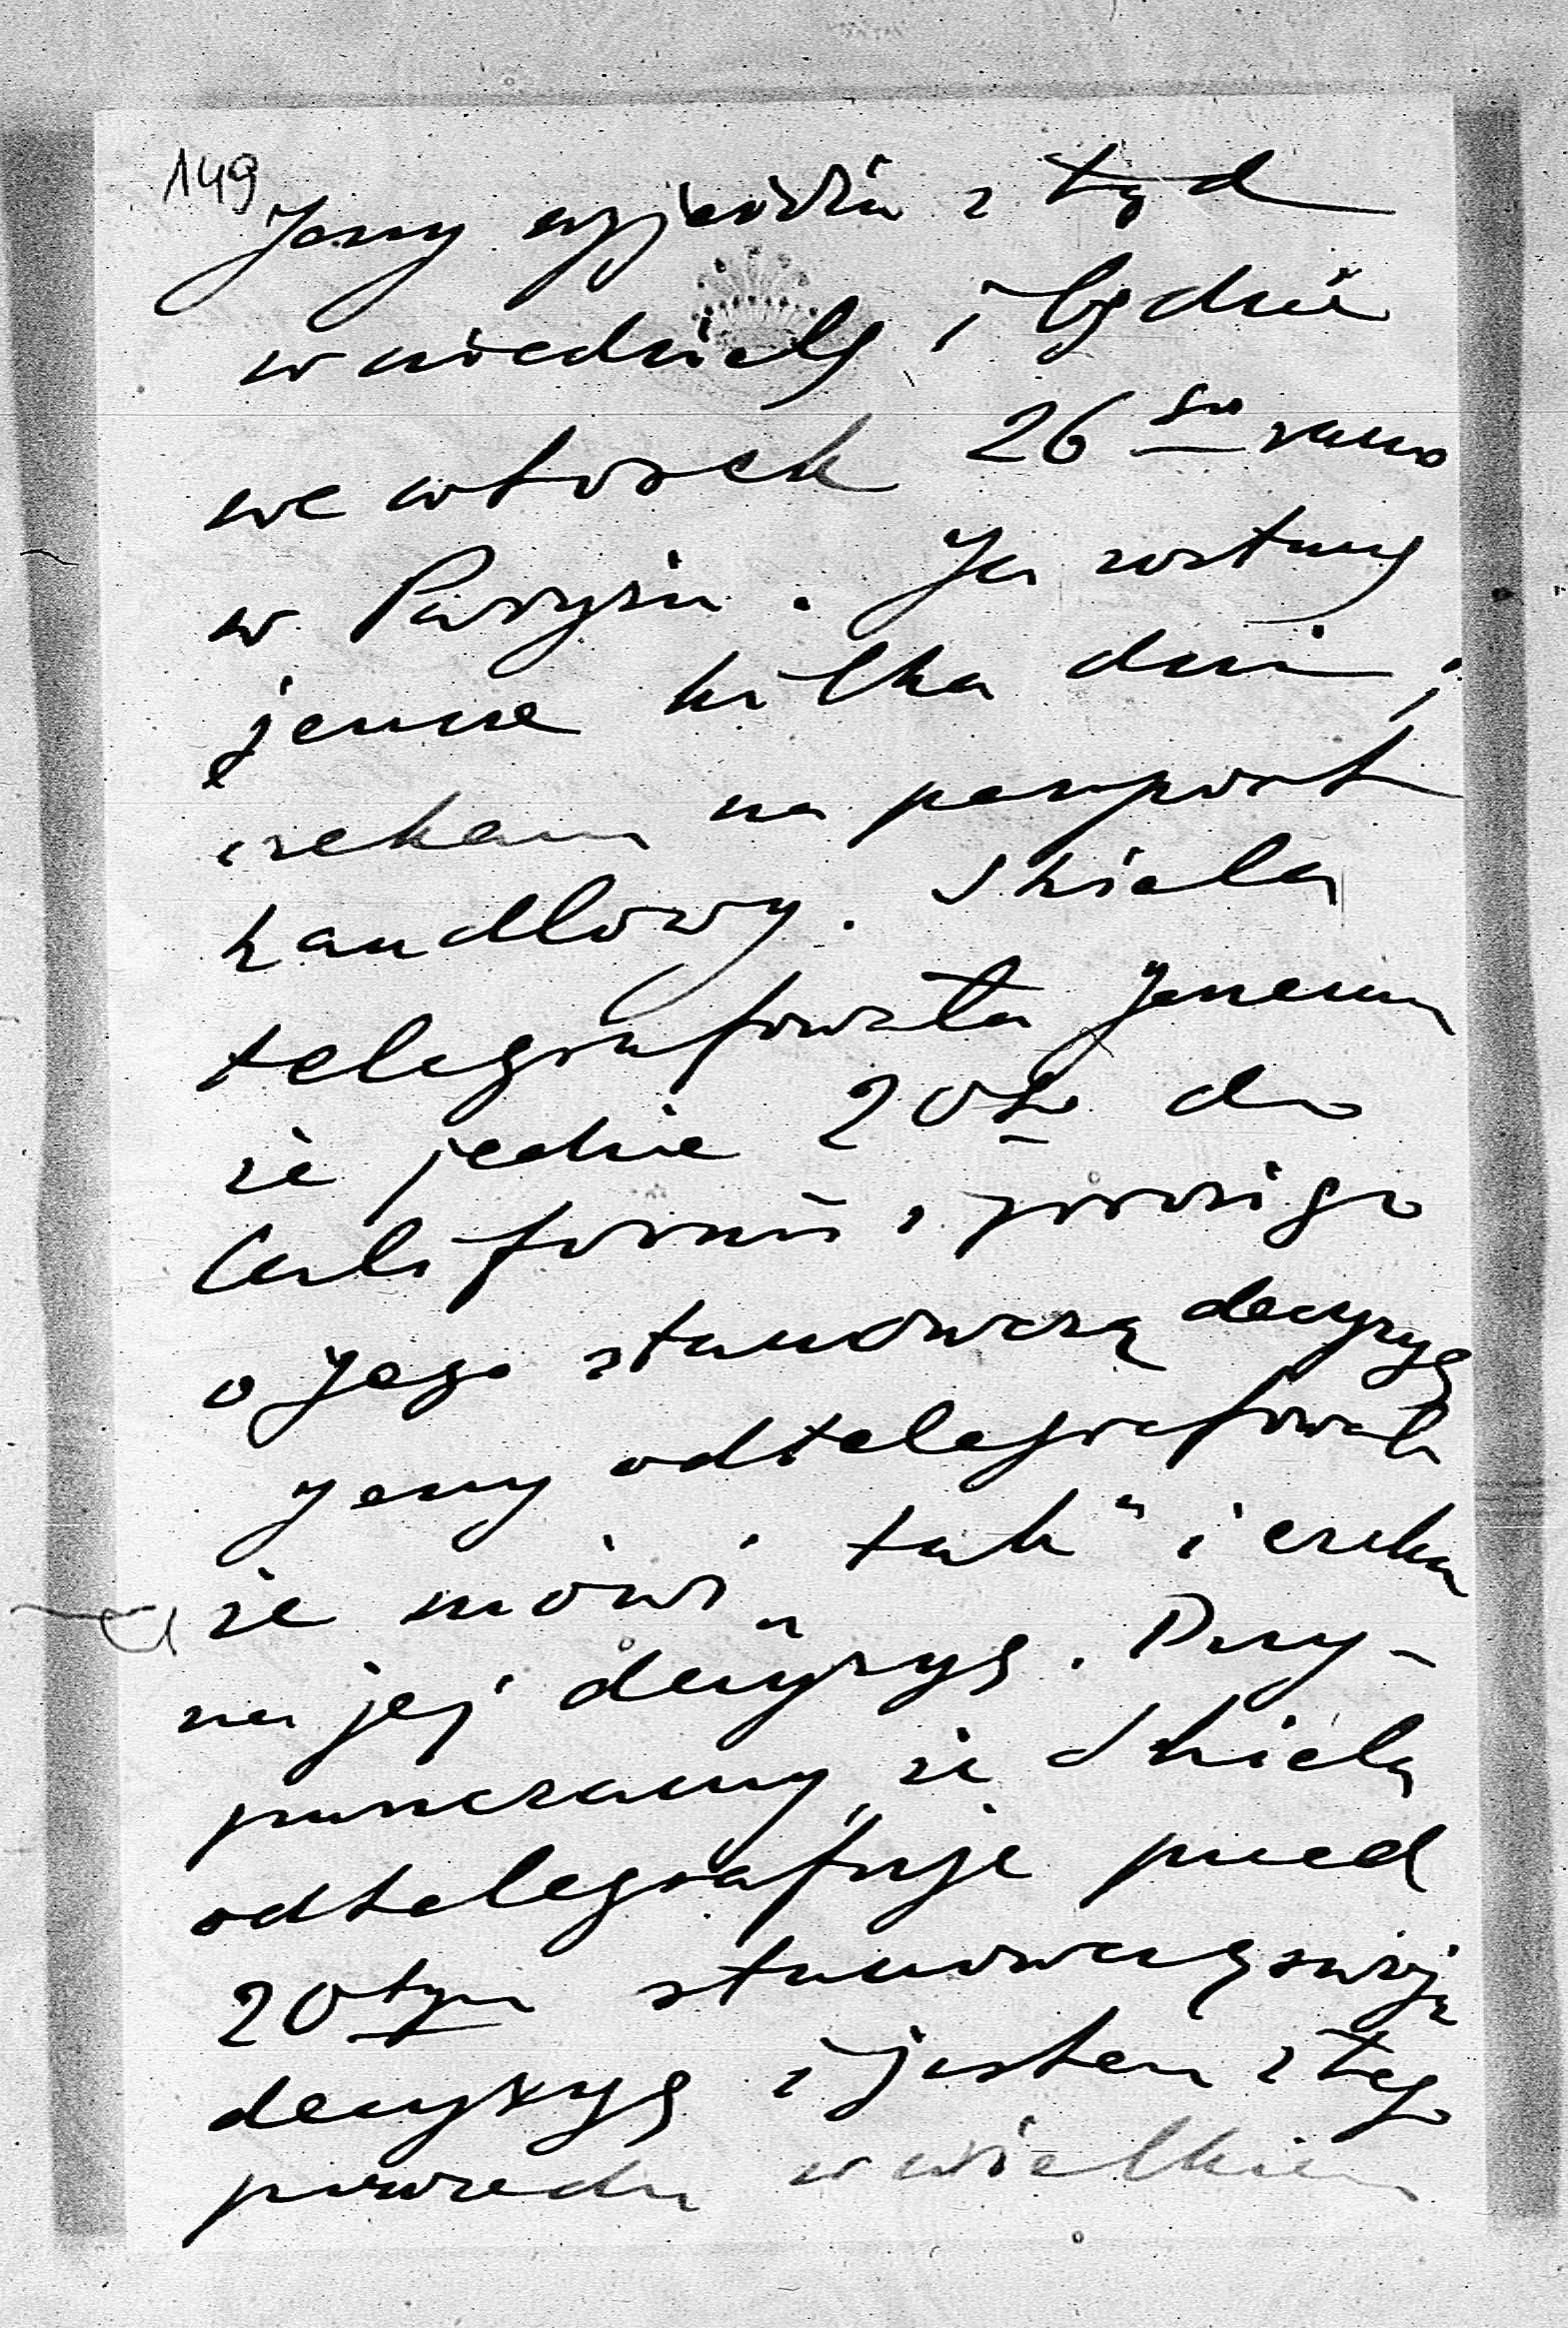 149
Jerzy wyjeżdża z tąd
w niedzielę i będzie
we wtorek 26 go rano
w Paryżu. Ja zostanę
jeszcze kilka dni i
czekam na paszport
handlowy. Skiela
telegrafowała Jerzemu
że jedzie 20go do
Californii i prosi go
o Jego stanowczą decyzyę
Jerzy odtelegrafował
że mówi „tak" i czeka
na jej decyzyę. Przy-
puszczamy że Skiela
odtelegrafuje przed
20tym stanowczą swoją
decyzyę i jestem z tego
powodu w wielkim